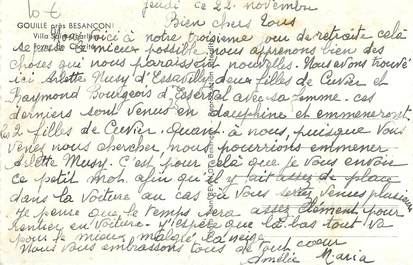 GOUILLE près BESANÇON
Villa St Ignace
jeudi ce 22 novembre
Bien chers tous
Nous voici à notre troisième jour de retraite celà
se passe le mieux possible, nous apprenons bien des
choses qui nous paraissent nouvelles. Nous avons trouvé
ici Arlette Musy d'Essavilly deux filles de Cuvier et
Raymond Bourgeois d'Eserval avec sa femme. ces
derniers sont venus en dauphine et emmeneront
les 2 filles de Cuvier. Quant à nous, puisque vous
venez nous chercher, nous pourrions emmener
Arlette Musy. C'est pour celà que je vous envoie
ce petit mot afin qu'il y ait assez de place
dans la voiture au cas où vous seriez venus plusieurs
Je pense que le temps sera assez clément pour
rentrer en voiture. J'espère que là bas tout va
pour le mieux malgré la neige.
Nous vous embrassons tous de tout coeur
Amélie Maria